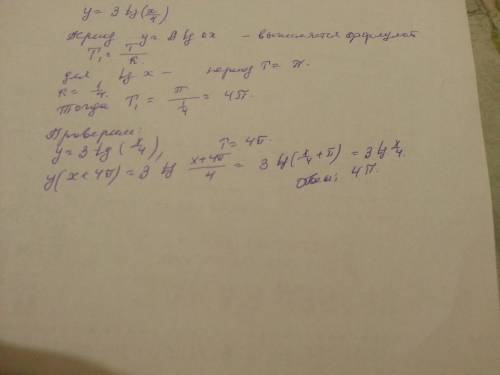 y = 3 tg (x/4)
Период y = A tg kx – вычисляется формулой
T₁ = T/k.
для tg x – период T = π.
k = 1/4.
Тогда T₁ = π/(1/4) = 4π.
Проверим:
y = 3 tg (x/4), T = 4π.
y(x+4π) = 3 tg (x+4π)/4 = 3 tg (x/4 + π) = 3 tg x/4.
Ответ: 4π.